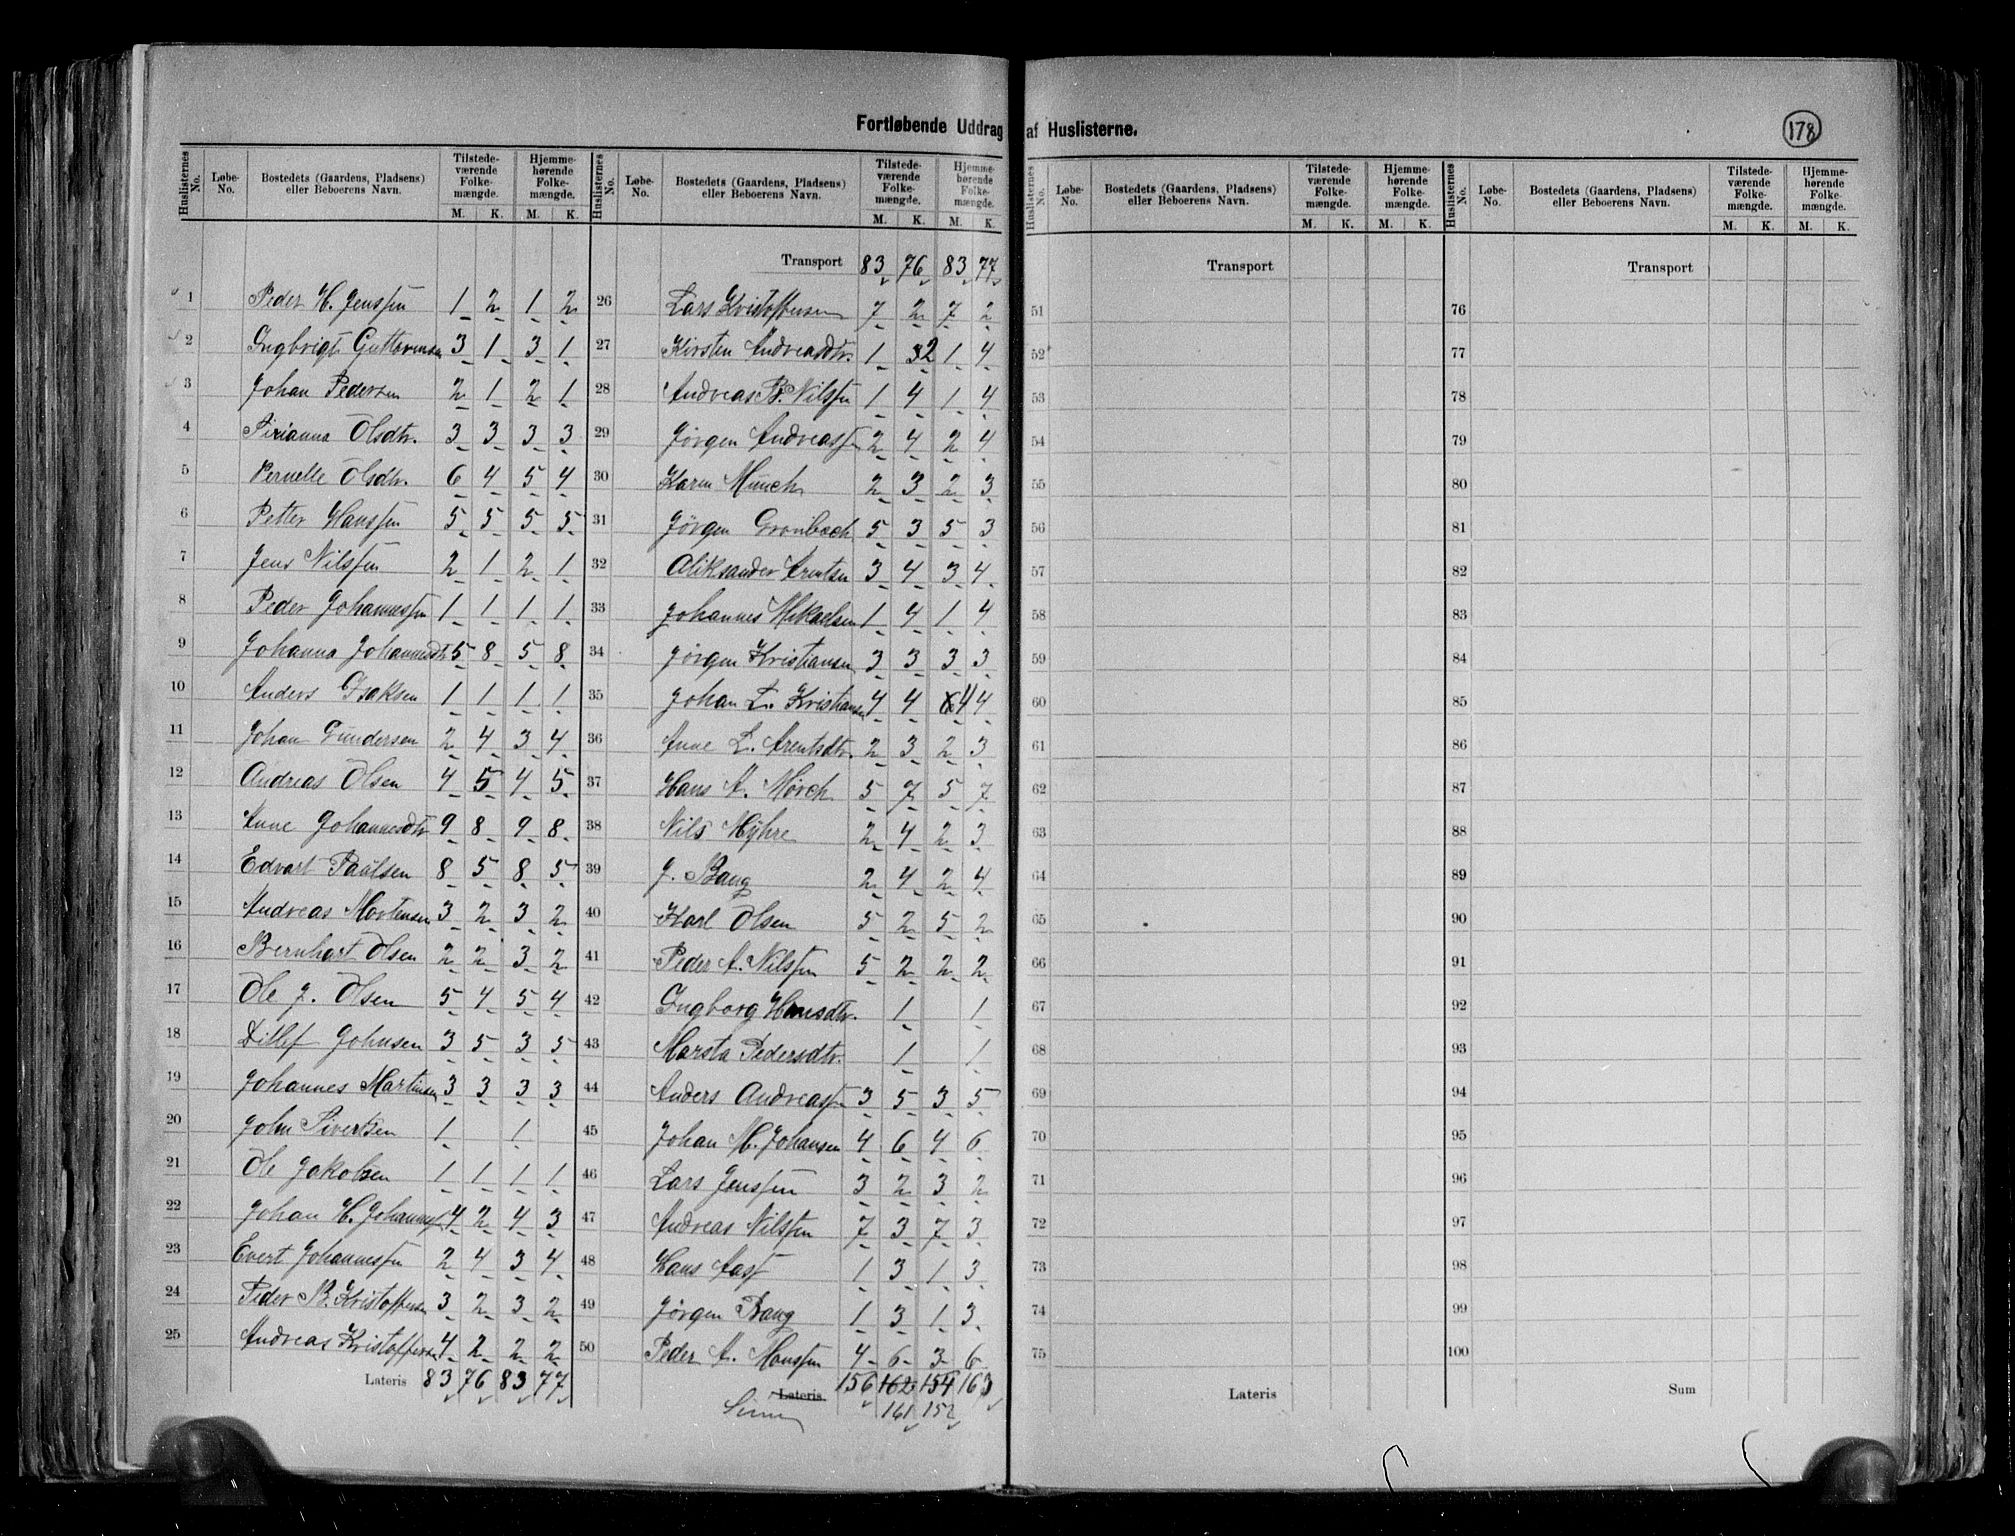 Fortløbende Uddrag af Huslisterne.
178
Huslisternes No. Løbe-No. Bostedets (Gaardens, Pladsens) eller Beboerens Navn. Tilstedeværende Folkemængde. M. K. Hjemmehørende Folkemængde. M. K.
1 Peder H. Jenssen 1 2 1 2
2 Ingbrigt Guttormsen 3 1 3 1
3 Johan Pedersen 2 1 2 1
4 Olsdtr. 3 3 3 3
5 Pernelle Olsdtr. 6 4 5 4
6 Petter Hanssen 5 5 5 5
7 Jens Nilssen 2 1 2 1
8 Peder Johannessen 1 1 1 1
9 Johanna Johannesdtr 5 8 5 8
10 Anders Isaksen 1 1 1 1
11 Johan Gundersen 2 4 3 4
12 Andreas Olsen 4 5 4 5
13 Anne Johannesdtr 9 8 9 8
14 Edvart Paalsen 8 5 8 5
15 Andreas Mortensen 3 2 3 2
16 Bernhart Olsen 2 2 3 2
17 Ole J. Olsen 5 4 5 4
18 Ditlef Johnsen 3 5 3 5
19 Johannes Martinsen 3 3 3 3
20 John Sivertsen 1 1
21 Ole Jakobsen 1 1 1 1
22 Johan H. Johanness 4 2 4 3
23 Evert Johannessen 2 4 3 4
24 Peder B. Kristoffersen 3 2 3 2
25 Andreas Kristoffersen 4 2 2 2
Lateris 83 76 83 77
Huslisternes No. Løbe-No. Bostedets (Gaardens, Pladsens) eller Beboerens Navn. Tilstedeværende Folkemængde. M. K. Hjemmehørende Folkemængde. M. K.
Transport 83 76 83 77
26 Lars Kristoffersen 7 2 7 2
27 Kirsten Andreasdtr. 1 32 1 4
28 Andreas B. Nilssen 1 4 1 4
29 Jørgen Andreassen 2 4 2 4
30 Karen Munch 2 3 2 3
31 Jørgen Gronbech 5 3 5 3
32 Aliksander Arentsen 3 4 3 4
33 Johannes Mikaelsen 1 4 1 4
34 Jørgen Kristiansen 3 3 3 3
35 Johan L. Kristiansen 4 4 4 4
36 Anne L. Arentsdtr. 2 3 2 3
37 Hans A. Mørch 5 7 5 7
38 Nils Myhre 2 4 2 3
39 J. Bang 2 4 2 4
40 Karl Olsen 5 2 5 2
41 Peder A. Nilssen 5 2 2 2
42 Ingborg Hansdtr. 1 1
43 Marsta Pedersdtr. 1 1
44 Anders Andreass 3 5 3 5
45 Johan M. Johansen 4 6 4 6
46 Lars Jenssen 3 2 3 2
47 Andreas Nilssen 7 3 7 3
48 Hans 1 3 1 3
49 Jørgen Bang 1 3 1 3
50 Peder A. Hanssen 4 6 3 6
Lateris 156 162 154 163
161 152
Huslisternes No. Løbe-No. Bostedets (Gaardens, Pladsens) eller Beboerens Navn. Tilstedeværende Folkemængde. M. K. Hjemmehørende Folkemængde. M. K.
Transport
51
52
53
54
55
56
57
58
59
60
61
62
63
64
65
66
67
68
69
70
71
72
73
74
75
Lateris
Huslisternes No. Løbe-No. Bostedets (Gaardens, Pladsens) eller Beboerens Navn. Tilstedeværende Folkemængde. M. K. Hjemmehørende Folkemængde. M. K.
Transport
76
77
78
79
80
81
82
83
84
85
86
87
88
89
90
91
92
93
94
95
96
97
98
99
100
Sum